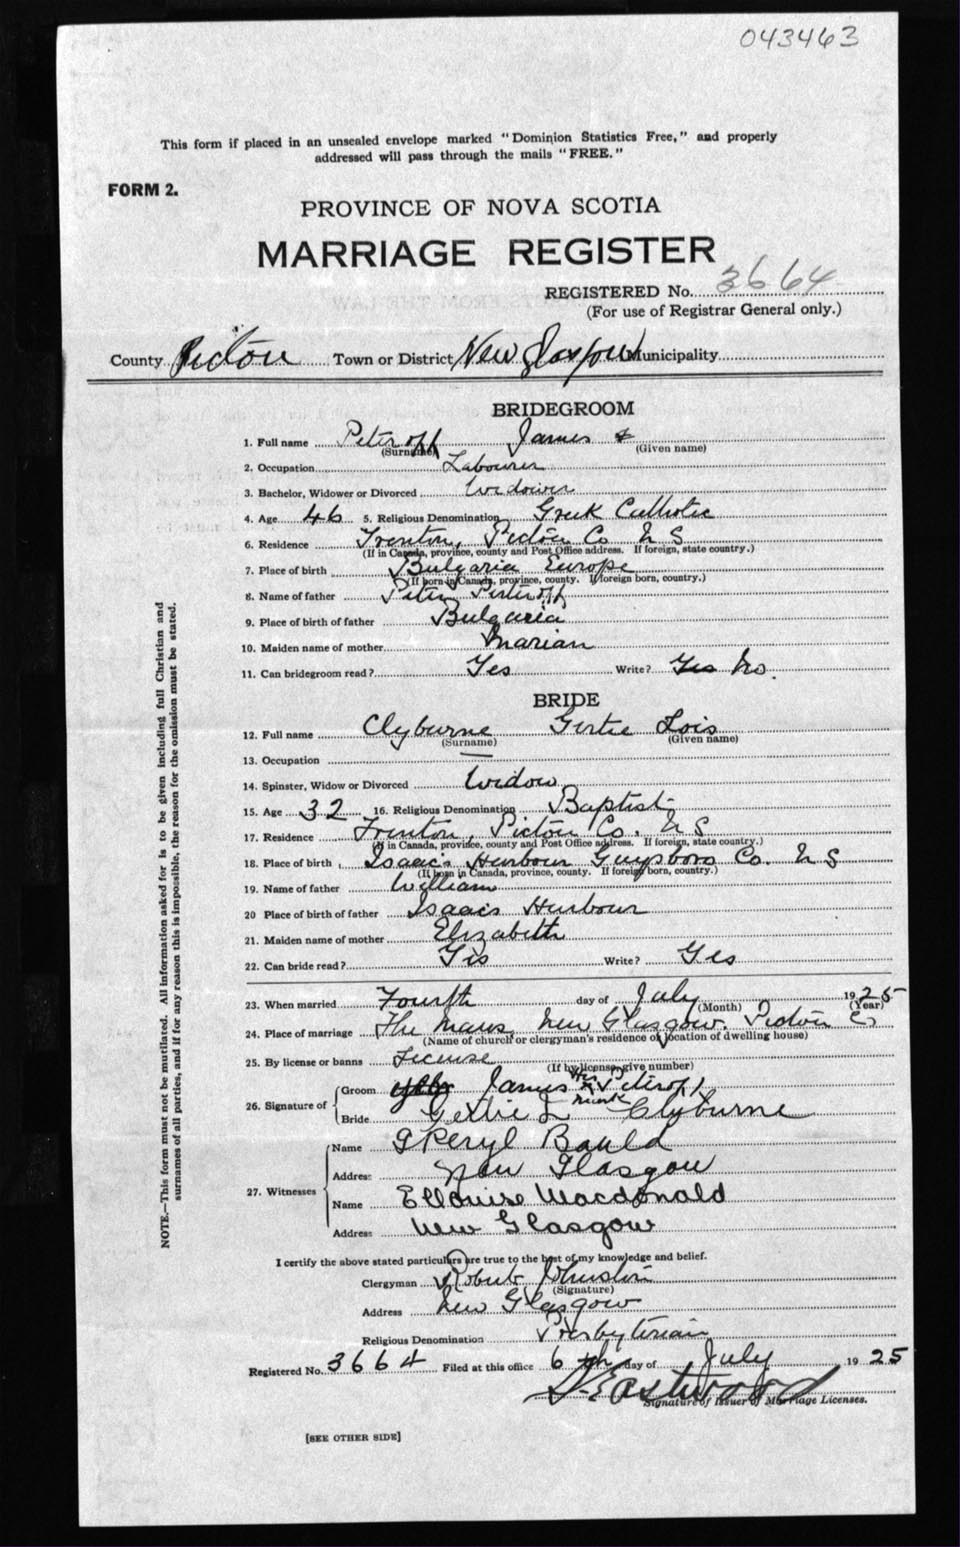 043463
This form if placed in an unsealed envelope marked "Dominion Statistics Free," and properly
addressed will pass through the mails "FREE."
FORM 2.
PROVINCE OF NOVA SCOTIA
MARRIAGE REGISTER
REGISTERED No. 3664
(For use of Registrar General only.)
County Pictou Town or District New Glasgow Municipality
BRIDEGROOM
1. Full name Peteroff James
(Surname) (Given name)
2. Occupation Labourer
3. Bachelor, Widower or Divorced Widower
4. Age 46 5. Religious Denomination Greek Catholic
6. Residence Trenton, Pictou Co N S
(If in Canada, province, county and Post Office address. If foreign, state country.)
7. Place of birth Bulgaria Europe
(If born in Canada, province, county. If foreign born, country.)
8. Name of father Peter Peteroff
9. Place of birth of father Bulgaria
10. Maiden name of mother Marian
11. Can bridegroom read? Yes Write? Yes No.
BRIDE
12. Full name Clyburne Gertie Lois
(Surname) (Given name)
13. Occupation —
14. Spinster, Widow or Divorced Widow
15. Age 32 16. Religious Denomination Baptist
17. Residence Trenton, Pictou Co. N S
(If in Canada, province, county and Post Office address. If foreign, state country.)
18. Place of birth Isaac's Harbour Guysboro Co. N S
(If born in Canada, province, county. If foreign born, country.)
19. Name of father William
20 Place of birth of father Isaacs Harbour
21. Maiden name of mother Elizabeth
22. Can bride read? Yes Write? Yes
23. When married Fourth day of July 1925
(Month) (Year)
24. Place of marriage The Manse, New Glasgow. Pictou Co
(Name of church or clergyman's residence or location of dwelling house)
25. By license or banns License
(If by license, give number)
26. Signature of Groom James His X mark Peteroff
Bride Gertie L Clyburne
27. Witnesses Name Peryl Bauld
Address New Glasgow
Name Ellouise Macdonald
Address New Glasgow
I certify the above stated particulars are true to the best of my knowledge and belief.
Clergyman Robert Johnston
(Signature)
Address New Glasgow
Religious Denomination Presbyterian
Registered No. 3664 Filed at this office 6th day of July 1925
Eastwood
Signature of Issuer of Marriage Licenses.
[SEE OTHER SIDE]
NOTE.—This form must not be mutilated. All information asked for is to be given including full Christian and
surnames of all parties, and if for any reason this is impossible, the reason for the omission must be stated.